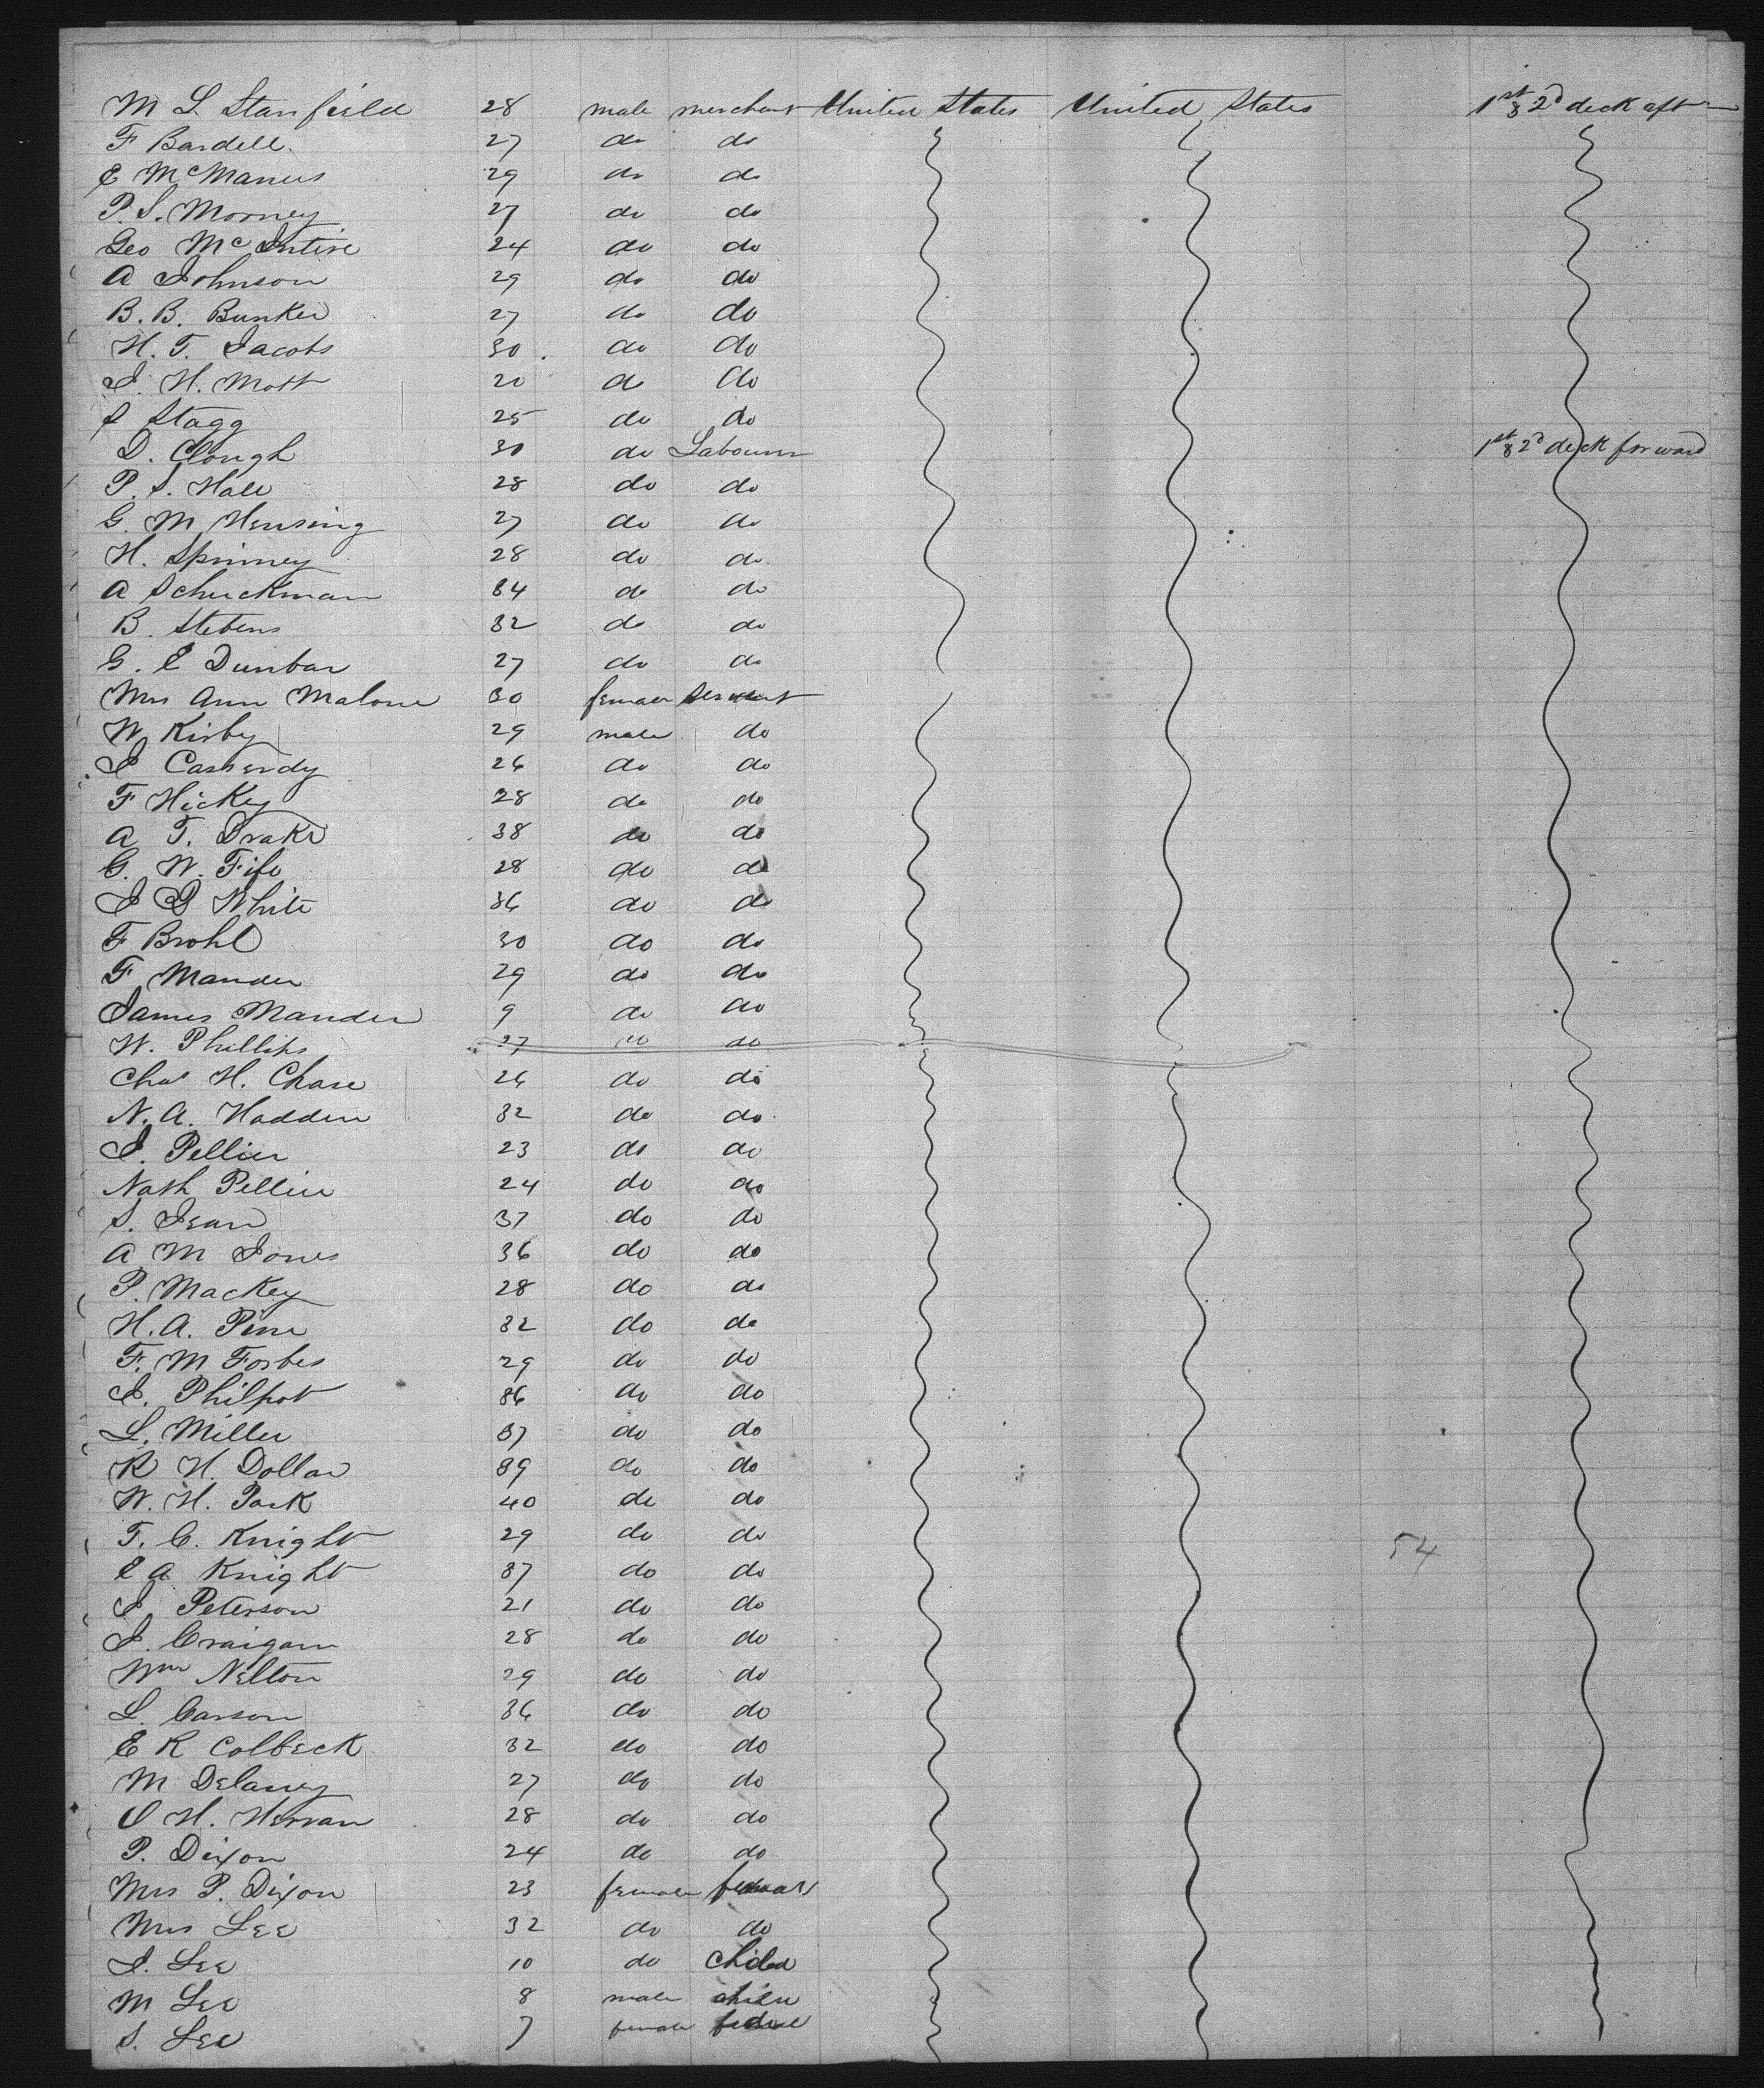 M L Stanfield 28 male merchant United States United States 1st & 2d deck aft
F Bardell. 27 do do
E McManus 29 do do
P. S. Morney 27 do do
Geo McIntire 24 do do
A Johnson 29 do do
B. B. Bunker 27 do do
H. T. Jacobs 30 do do
J. H. Mott 20 do do
S Stagg 25 do do
D. Clough 30 do Labourer 1st & 2d deck forward
P. S. Hale 28 do do
G. M Hensing 27 do do
H. Spinney 28 do do
A Schuckman 34 do do
B. Stebens 32 do do
G. E Dunbar 27 do do
Mrs Ann Malone 30 female servant
W Kirby 29 male do
J Casserdy 26 do do
F Hickey 28 do do
A T. Drake 38 do do
G. W. Fife 28 do do
J B White 36 do do
F Brohl 30 do do
F Mander 29 do do
James Mander 9 do do
W. Phillips 27 do do
Chas H. Chase 26 do do
N. A. Hadden 32 do do
J. Pellier 23 do do
Nath Pellier 24 do do
S. Jean 37 do do
A M Jones 36 do do
P. Mackey 28 do do
H. A. Pine 32 do do
F. M Forbes 29 do do
J. Philpot 36 do do
L. Miller 37 do do
R H. Dollar 39 do do
W. H. Park 40 do do
T. C. Knight 29 do do
E A Knight 37 do do
54
J. Peterson 21 do do
J. Craigam 28 do do
Wm Nelton 29 do do
L. Carson 36 do do
E R Colbeck 32 do do
M Delaney 27 do do
O H. Herran 28 do do
P. Dixon 24 do do
Mrs P. Dixon 23 female
Mrs Lee 32 do do
J. Lee 10 do child
M Lee 8 male child
S. Lee 7 female